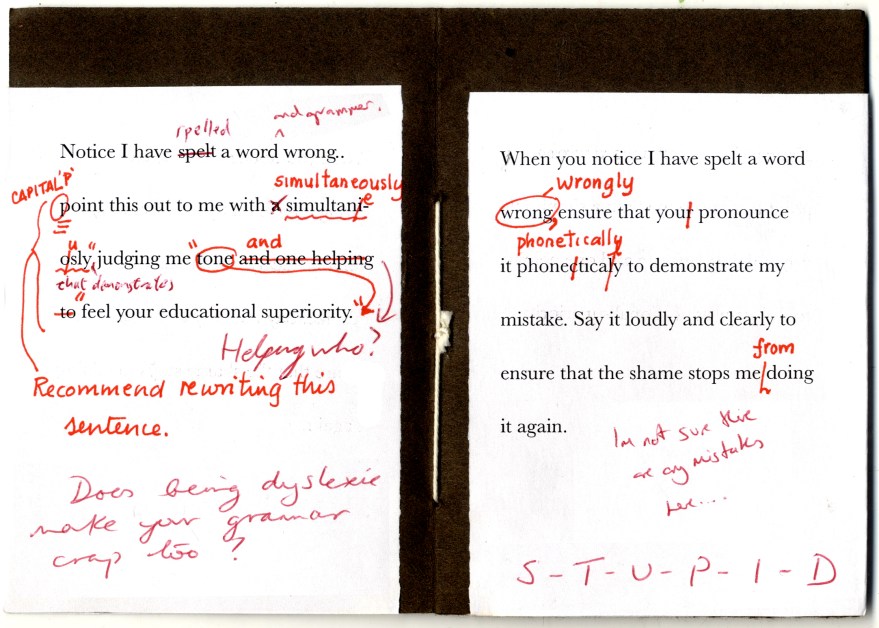 and grammer.
spelled
Notice I have spelt a word wrong..
CAPITAL 'P'
simultaneously
point this out to me with a simultani-
e
u
and
osly judging me " tone and one helping
that demonstrates
to " feel your educational superiority. "
Helping who?
Recommend rewriting this
sentence.
Does being dyslexic
make your grammar
crap too?
When you notice I have spelt a word
wrongly
wrong, ensure that your pronounce
phonetically
it phonectically to demonstrate my
mistake. Say it loudly and clearly to
from
ensure that the shame stops me doing
it again.
I'm not sure there
are any mistakes
here....
S-T-U-P-I-D